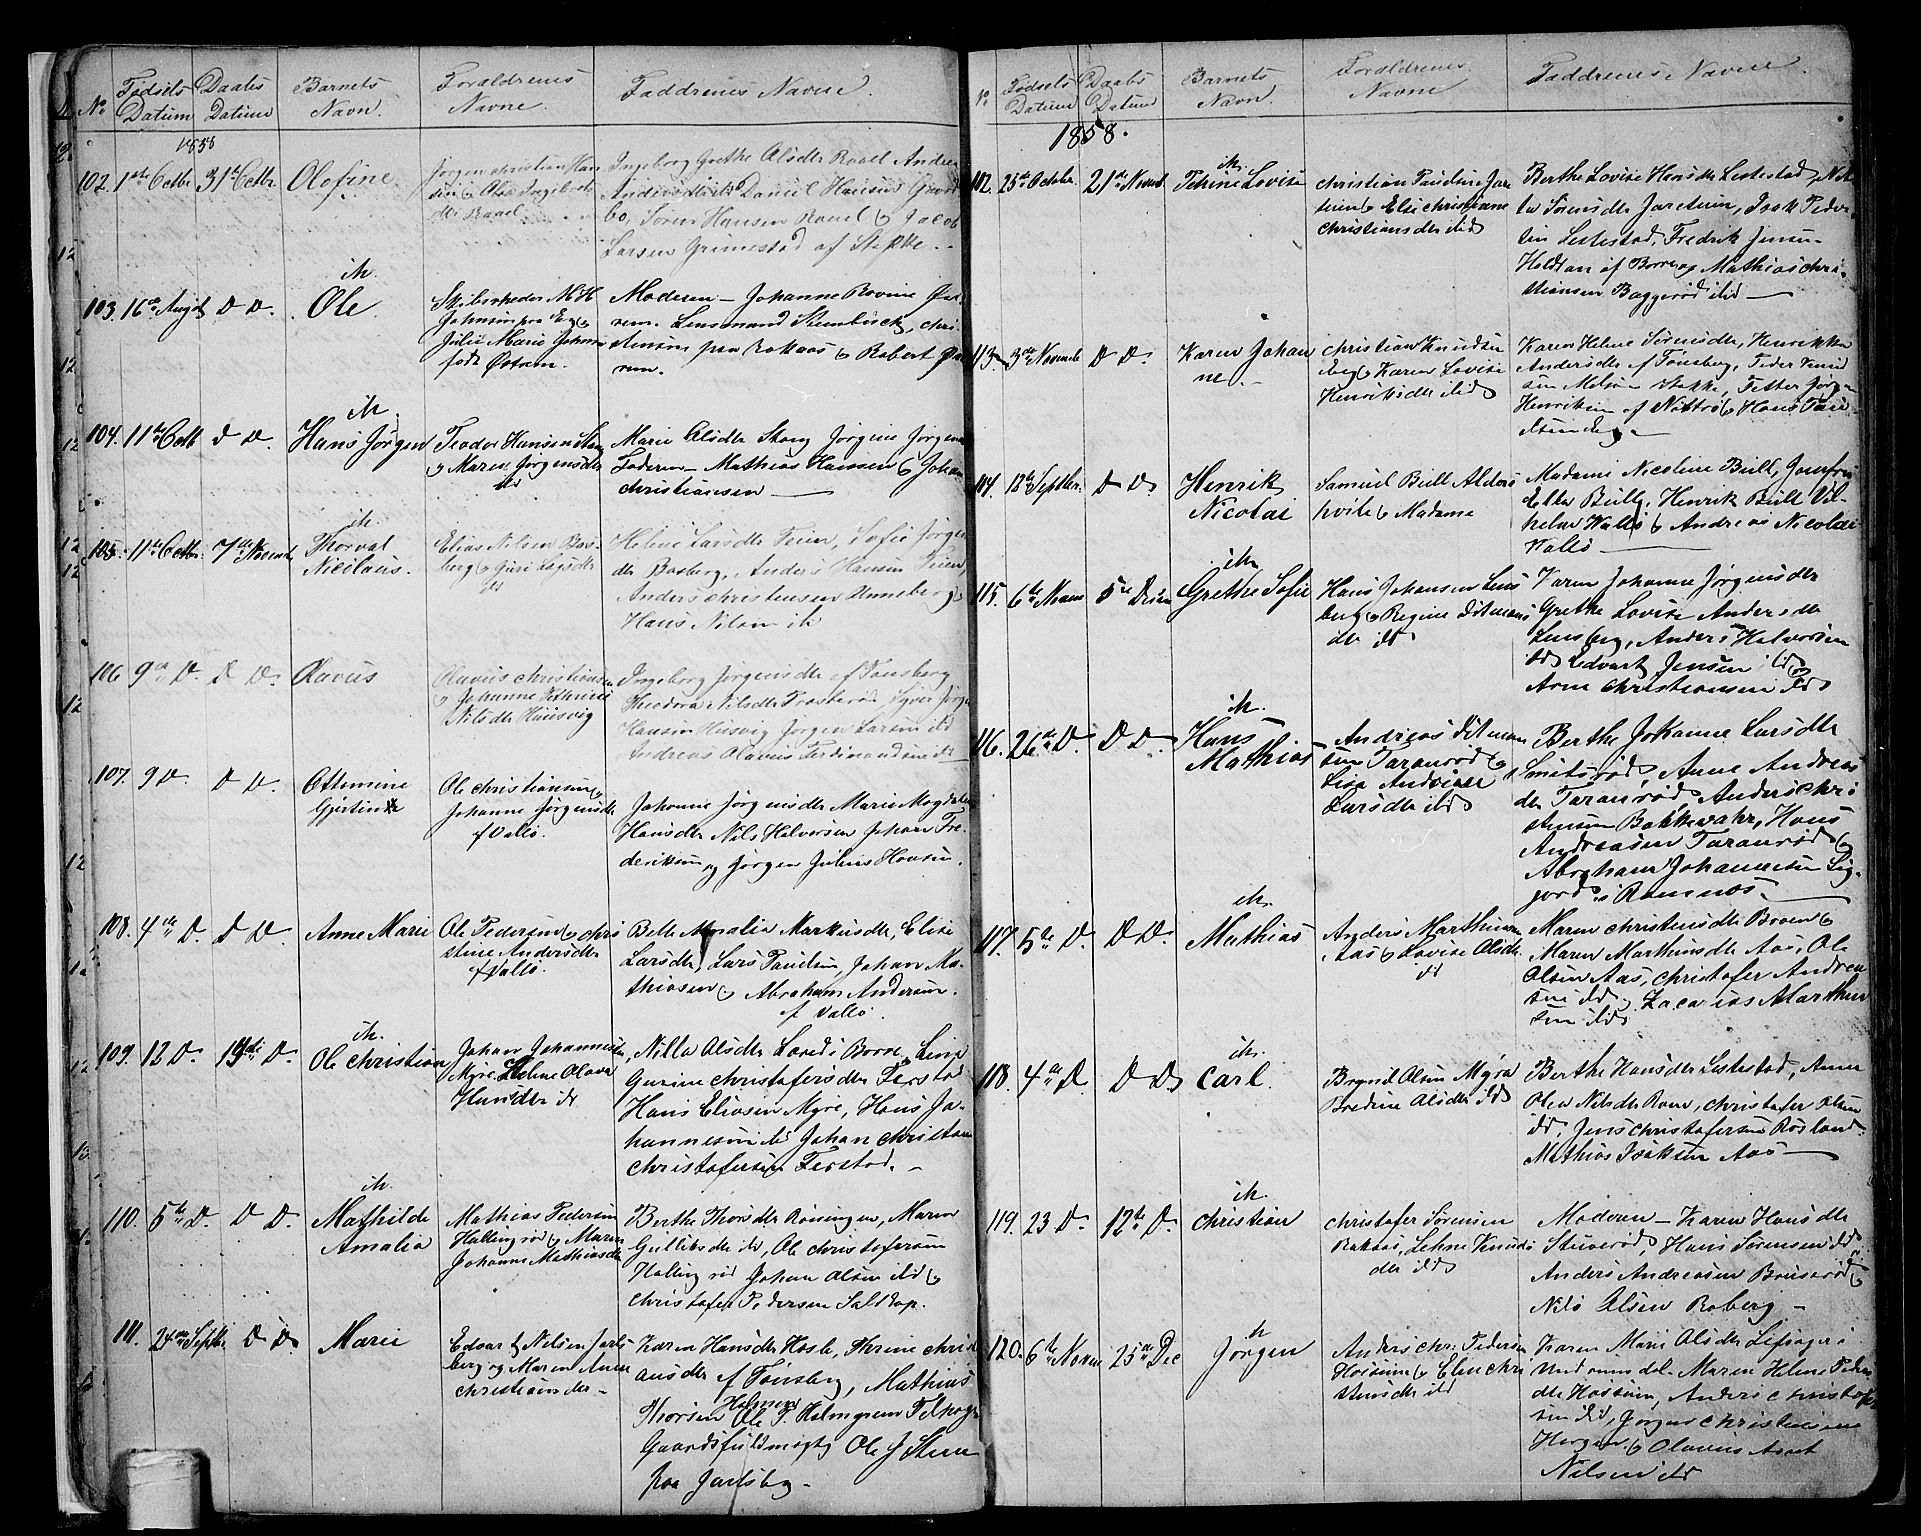 No
Fødsels
Datum
Daabs
Datum
Barnets
Navn.
Forældrenes
Navne.
Faddrenes Navne.
1858
102. 1ste Octbr 31te Octbr Olofine
Jørgen Christian Han
Ingeborg Grethe Olsdtr Ravel Andrea
Daniel Hansen
bo, Søren Hansen Ravel og Jacob
Larsen Grimestad af Stokke.
ih.
103. 16de Augst D D. Ole
Skibsrheder M H
Johnsen paa Eg og
Julie Marie Johnsen
født Østrem.
Moderen - Johanne Rovine Øst
rem. Lensmand Steenbuck, Chri
stensen paa Rakaas og Robert Øst
rem.
ih.
104. 11te Octb D D. Hans Jørgen
Teodor Hansen Stang
og Maren Jørgensdtr
ibd
Marie Olsdtr Stang Jørgine Jørgens
Faderen - Mathias Hansen og Johan
Christiansen
ih.
105. 11te Octbr. 7de Novemb Thorval
Nicolaus.
Elias Nilsen Bas-
berg og Guri Larsdtr
ibd
Helene Larsdtr Feien, Sofie Jørgen
dtr Basberg, Anders Hansen Feien,
Anders Christensen Unneberg og
Hans Nilsen ib
106 9de D. D D. Olavus
Olavus Christiansen
og Johanne Kathrine
Nilsdtr Huusvig
Ingeborg Jørgensdtr af Tønsberg
Theodora Nilsdtr Frosterød, Syver Jørg
Hansen Husvig Jørgen Larsen ibd
Andreas Olavus Ferdinandsen ibd
107. 9 D. D D. Ottomine
Gjertine
Ole Christiansen og
Johanne Jørgensdtr
af Vallø.
Johanne Jørgensdtr Marie Magdalene
Hansdtr Nils Halvorsen Johan Fre
deriksen og Jørgen Julius Hansen.
108. 4de D. D D. Anne Marie
Ole Pedersen og Chri
stine Andersdtr
af Vallø.
Belle Amalia Markusdtr, Elise
Larsdtr, Lars Paulsen, Johan Ma-
thiasen og Abraham Andersen.
af Vallø.
ih.
109. 12 D. 14de D. Ole Christian
Johan Johannesen
Myre Helene Olava
Hansdtr ib
Nilla Olsdtr Lored i Borre, Line
Gurine Christofersdtr Ferstad
Hans Eliasen Myre, Hans Jo-
hannesen ibd Johan Christian
Christofersen Ferstad. -
ih.
110. 5te D. D D. Mathilde
Amalia
Mathias Pedersen
Hallingrød og Maren
Johanne Mathiasdtr
Berthe Thorsdtr Røisingen, Maren
Gulliksdtr ibd, Ole Christofersen
Halling rød Johan Olsen ibd og
Christofer Pedersen Saltkop.
111. 24de Septbr D D. Marie
Edvart Nilsen Jarls
berg og Maren Anne
Christiansdtr -
Karen Hansdtr Hasle, Thrine Christi
ansdtr af Tønsberg, Mathias
Halmen
Thorsen Ole P. Holmgreen
Gaardsfuldmægtig Ole J Steen
paa Jarlsberg -
No
Fødsels
Datum
Daabs
Datum
Barnets
Navn.
Forældrenes
Navne
Faddrenes Navne.
1858.
ih.
112. 25de Octobr. 21de Novemb Tekine Lovise
Christian Paulsen Jare
teien og Elise Christiane
Christiansdtr ibd
Berthe Lovise Hansdtr Lestestad, Nil
la Sørensdtr Jareteien, Isak Peder-
sen Lestestad, Fredrik Jensen
Holdtan af Borre og Mathias Chri-
stiansen Baggerød ibd
113. 3de Novemb D D. Karen Johan
ne. -
Christian Knudsen
Eeg og Karen Lovise
Henriksdtr ibd
Karen Helene Sørensdtr, Henrikka
Andersdtr af Tønsberg, Peder Knud
sen Melsom Stokke, Petter Jørgen
Henriksen af Nøtterø og Hans Paul
Olsen Eeg -
114. 12te Septbr. D D. Henrik
Nicolai
Samuel Bull Alders
hvile og Madame
Madame Nicoline Bull, Jomfru
Ella Bull, Henrik Bull Vil-
helm Vallø og Andreas Nicolai
Vallø
ih.
115. 6te Novem 5te Decem Grethe Sofie
Hans Johansen Lens
berg og Regine Ditmans
dtr ibd
Karen Johanne Jørgensdtr
Grethe Lovise Andersdtr
Lensberg, Anders Halvorsen
ibd, Edvart Jensen ibd og
Arne Christiansen ibd
ih.
116. 26de D. D D. Hans
Mathias
Andreas Ditman
sen Taranrød og
Lise Andrine
Larsdtr ibd
Berthe Johanne Larsdtr
Smidsrød, Anne Andreas
dtr Taranrød, Anders Chri
stensen Bakkevahr, Hans
Andreasen Taranrød og
Abraham Johannesen Sig-
jord i Ramnæs.
ih.
117. 5te D. D D. Mathias
Anders Marthinsen
Aas og Lovise Olsdtr
ibd
Maren Christensdtr Broen og
Maren Marthinsdtr Aas, Ole
Olsen Aas, Christofer Andrea
sen ibd og Zacarias Marthin
sen ibd
ih.
118. 4de D. D D. Carl.
Brynild Olsen Myra
Bredine Olsdtr ibd
Berthe Hansdtr Lestestad, Anne
Olea Nilsdtr Roen, Christofer Olsen
ibd, Jens Christofersen Røsland
Mathias Isaksen Aas
ih.
119. 23 D. 12te D. Christian
Christofer Sørensen
Rakaas, Lehne Knuds
dtr ibd
Moderen - Karen Hansdtr
Stuverød, Hans Sørensen ibd
Anders Andreasen Bruserød og
Nils Olsen Roberg -
ih
120. 6te Novem 25de Dec Jørgen
Anders Chr: Pedersen
Hossum og Elen Chri
stensdtr ibd
Karen Marie Olsdtr Lefsager i
Maren Helene Peder
dtr Hossum, Anders Christofer
sen ibd, Jørgen Christiansen
Horgen og Olavus Anet
Nilsen ibd